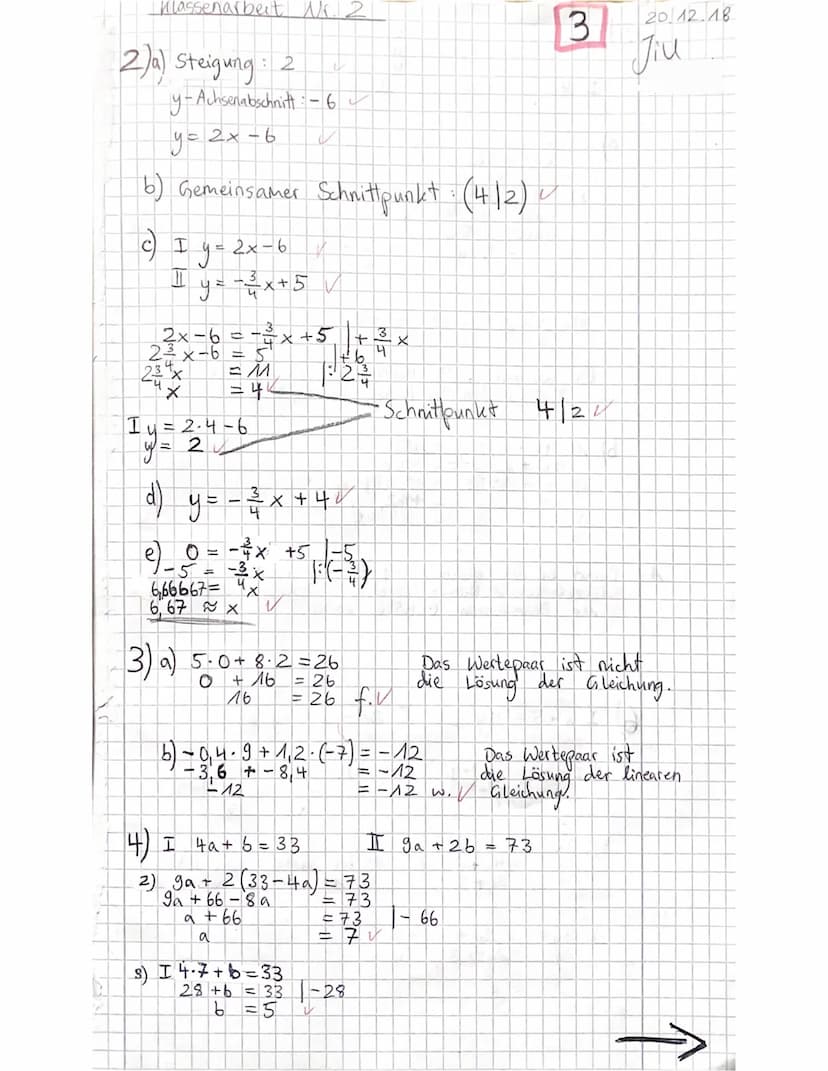 Klassenarbeit Nr. 2
3
20.12.18
2)a) Steigung: 2
y-Achsenabschnitt: -6
y = 2x - 6
b) Gemeinsamer Schnittpunkt: (4|2)
c) I y = 2x - 6
II y = -3/4 x + 5
2x - 6 = -3/4 x + 5 | + 3/4 x
2 3/4 x - 6 = 5 | + 6
2 3/4 x = 11 | : 2 3/4
x = 4
Schnittpunkt 4|2
I y = 2·4 - 6
y = 2
d) y = -3/4 x + 4
e) 0 = -3/4 x + 5 | -5
-5 = -3/4 x | : (-3/4)
6,66667 = x
6,67 ≈ x
3) a) 5·0 + 8·2 = 26 Das Wertepaar ist nicht
0 + 16 = 26 die Lösung der Gleichung.
16 = 26 f.
b) -0,4·9 + 1,2·(-7) = -12 Das Wertepaar ist
-3,6 + -8,4 = -12 die Lösung der linearen
-12 = -12 w. Gleichung.
4) I 4a + b = 33 II 9a + 2b = 73
2) 9a + 2(33 - 4a) = 73
9a + 66 - 8a = 73
a + 66 = 73 | - 66
a = 7
3) I 4·7 + b = 33
28 + b = 33 | -28
b = 5